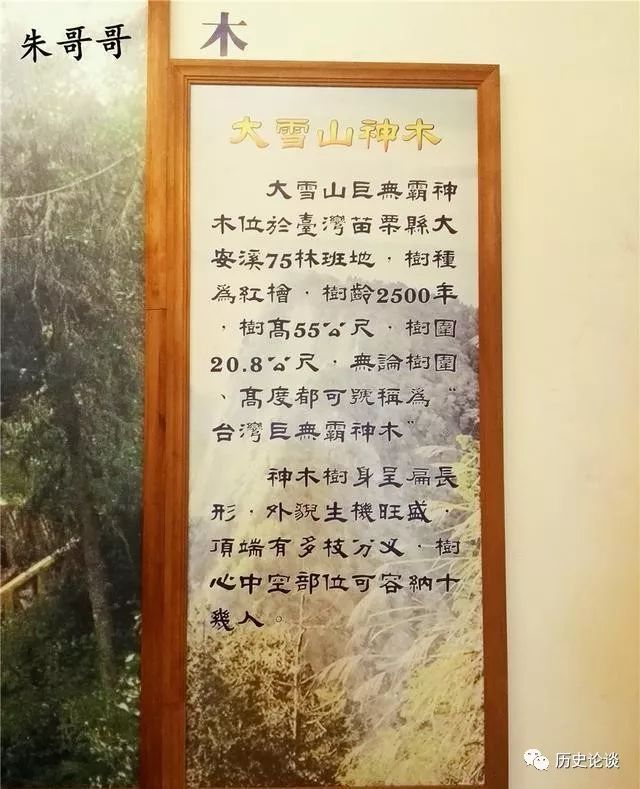 朱哥哥
木
大雪山神木
大雪山巨無霸神
木位於臺灣苗栗縣大
安溪75林班地，樹種
為紅檜，樹齡2500年
，樹高55公尺，樹圍
20.8公尺，無論樹圍
、高度都可號稱為“
台灣巨無霸神木”。
神木樹身呈扁長
形，外貌生機旺盛，
頂端有多枝分叉，樹
心中空部位可容納十
幾人。
历史论谈